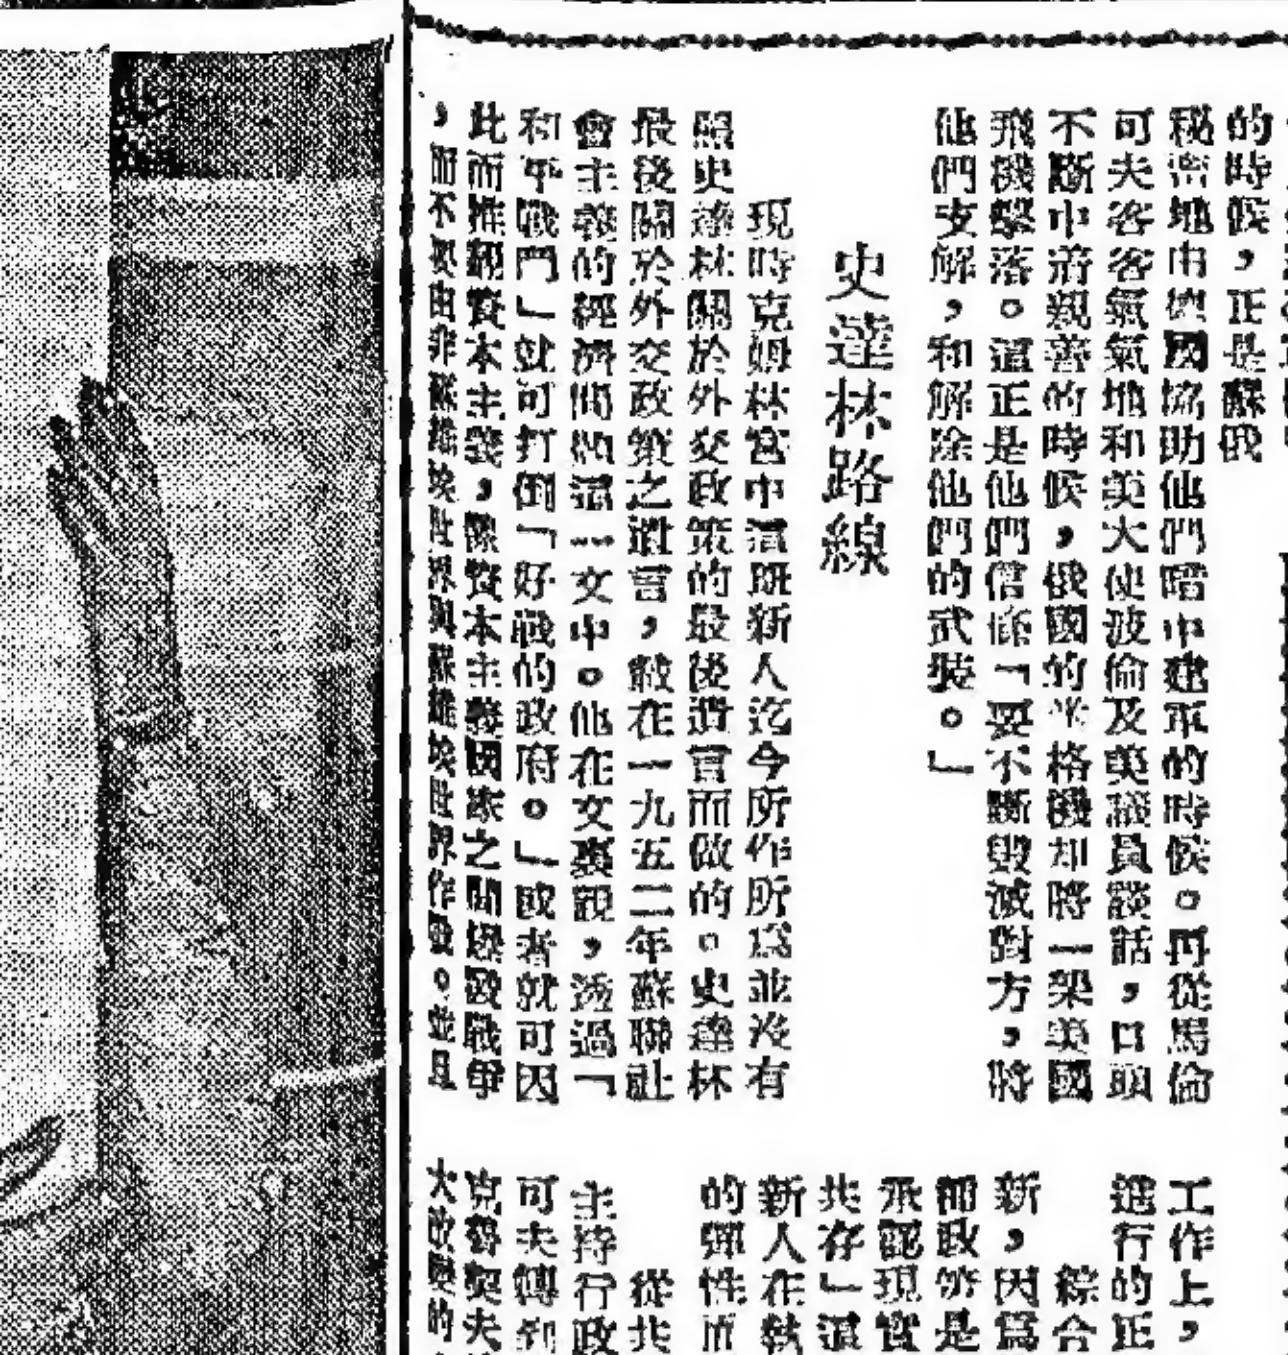 的時候，正是蘇俄
秘密地由德國協助他們暗中建軍的時候。再從馬倫
可夫客客氣氣地和美大使波倫及美議員談話，口頭
不斷申述親善的時候，俄國的米格機却將一架美國
飛機擊落。這正是他們信條「要不斷毀滅對方，將
他們支解，和解除他們的武裝。」
史達林路線
現時克姆林宮中這班新人迄今所作所爲並沒有
照史達林關於外交政策的最後遺言而做的。史達林
最後關於外交政策之遺言，散在一九五二年蘇聯社
會主義的經濟問題這一文中。他在文裏說，透過「
和平戰鬥」就可打倒「好戰的政府。」或者就可因
此而推翻資本主義，像資本主義國家之間爆發戰爭
，而不要由非蘇維埃世界與蘇維埃世界作戰。並且
工作上，
進行的正
綜合
新，因爲
都政策是
承認現實
共存」這
新人在執
的彈性
從共
主持行政
可夫轉到
克魯契夫
大改變的